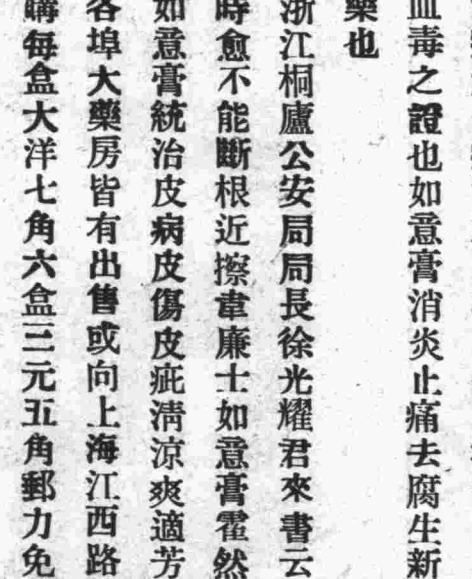 血毒之證也如意膏消炎止痛去腐生新
藥也
浙江桐廬公安局局長徐光耀君來書云
時愈不能斷根近擦韋廉士如意膏霍然
如意膏統治皮病皮傷皮疵清涼爽適芳
各埠大藥房皆有出售或向上海江西路
購每盒大洋七角六盒三元五角郵力免